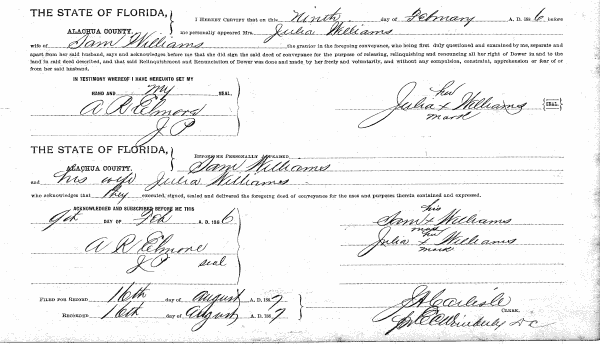 THE STATE OF FLORIDA,
ALACHUA COUNTY.
I HEREBY CERTIFY that on this Ninth day of February A. D. 188 6 before
me personally appeared Mrs. Julia Williams
wife of Sam Williams the grantor in the foregoing conveyance, who being first duly questioned and examined by me, separate and
apart from her said husband, says and acknowledges before me that she did sign the said deed of conveyance for the purpose of releasing, relinquishing and renouncing all her right of Dower in and to the
land in said deed described, and that said Relinquishment and Renunciation of Dower was done and made by her freely and voluntarily, and without any compulsion, constraint, apprehension or fear of or
from her said husband.
IN TESTIMONY WHEREOF I HAVE HEREUNTO SET MY
HAND AND my SEAL,
A R Elmore
J P
her
Julia x Williams SEAL.
mark
THE STATE OF FLORIDA,
ALACHUA COUNTY.
BEFORE ME PERSONALLY APPEARED Sam Williams
and his wife Julia Williams
who acknowledges that they executed, signed, sealed and delivered the foregoing deed of conveyance for the uses and purposes therein contained and expressed.
ACKNOWLEDGED AND SUBSCRIBED BEFORE ME THIS
9th DAY OF Feb A. D. 188 6
A R Elmore
J P seal
his
Sam x Williams
mark
her
Julia x Williams
mark
FILED FOR RECORD 16th day of August A. D. 188 7
RECORDED 16th day of August A. D. 188 7
J A Carlisle
CLERK.
D C